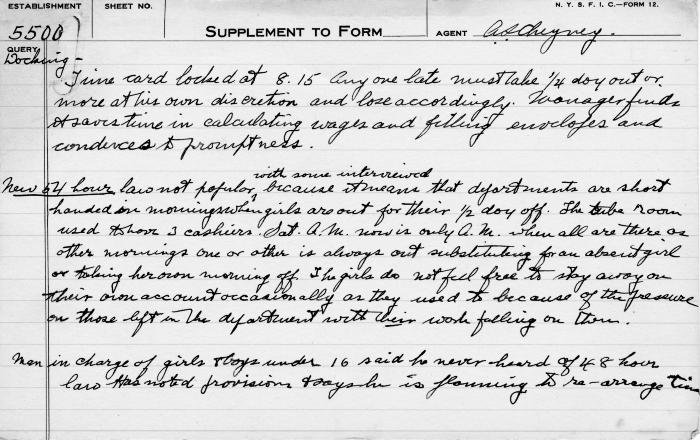 ESTABLISHMENT SHEET NO. N. Y. S. F. I. C.—FORM 12.
5500 SUPPLEMENT TO FORM AGENT A S Cheyney.
QUERY
Docking -
Time card locked at 8.15 Any one late must take 1/4 day out or
more at his own discretion and lose accordingly. Manager finds
it saves time in calculating wages and filling envelopes and
conduces to promptness.
with some interviewed
New 54 hour law not popular, because it means that departments are short
handed in mornings when girls are out for their 1/2 day off. The tube room
used to have 3 cashiers. Sat. A.M. now is only A.M. when all are there as
other mornings one or other is always out substituting for an absent girl
or taking her own morning off. The girls do not feel free to stay away on
their own account occasionally as they used to because of the pressure
on those left in the department with their work falling on them.
Man in charge of girls & boys under 16 said he never heard of 48 hour
law Has noted provisions & says he is planning to re-arrange